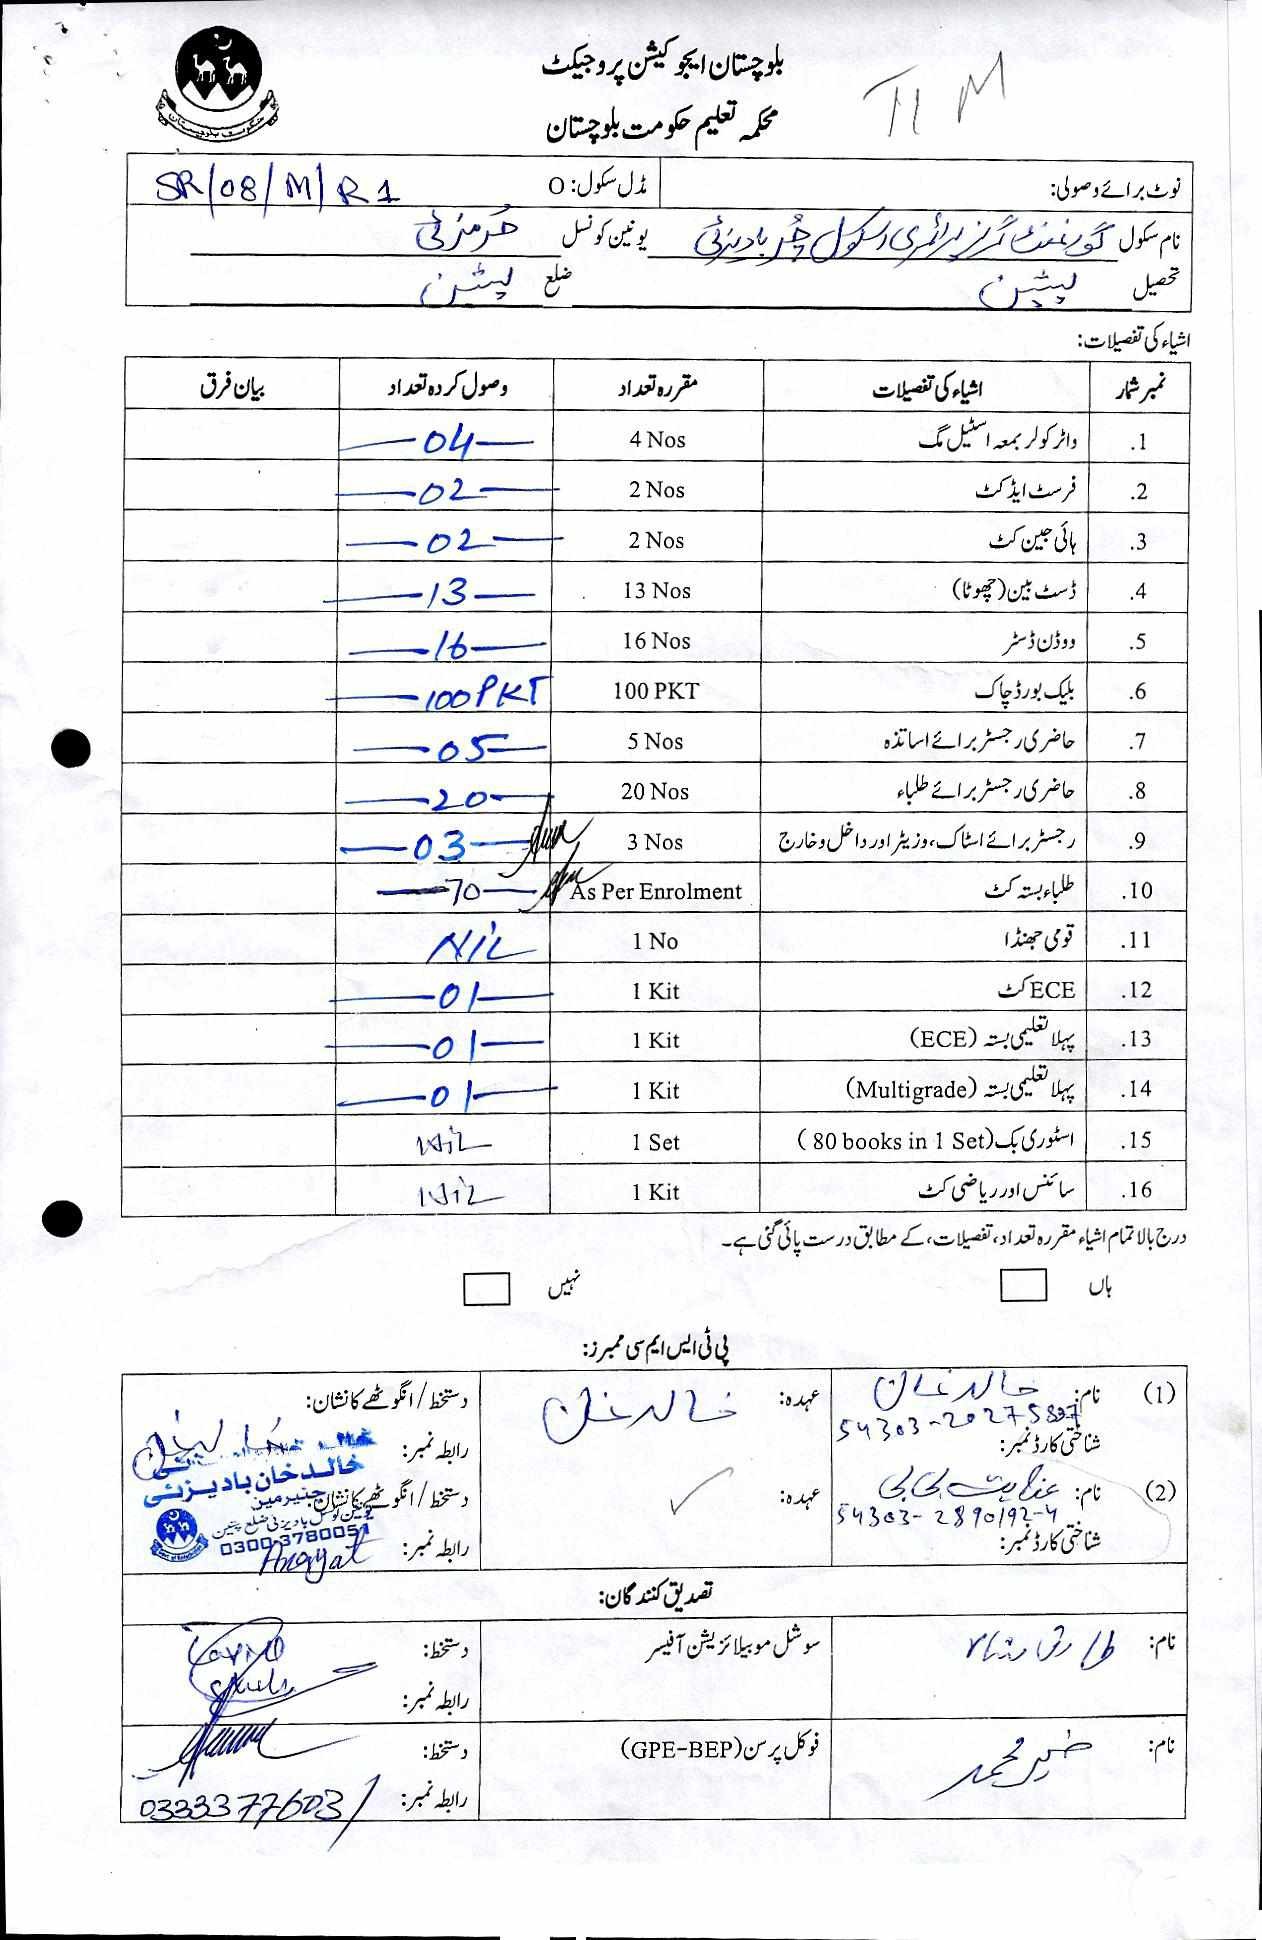 بلوچستان ایجوکیشن پروجیکٹ
محکمہ تعلیم حکومت بلوچستان
TIM
نوٹ برائے وصولی: مڈل سکول: O SR/08/M/R1
نام سکول گورنمنٹ گرلز پرائمری اسکول بادیزئی یونین کونسل حرمزئی
تحصیل پشین ضلع پشین
اشیاء کی تفصیلات:
نمبر شمار اشیاء کی تفصیلات مقررہ تعداد وصول کردہ تعداد بیان فرق
1. واٹر کولر بمعہ اسٹیل مگ 4 Nos 04
2. فرسٹ ایڈ کٹ 2 Nos 02
3. ہائی جین کٹ 2 Nos 02
4. ڈسٹ بین (چھوٹا) 13 Nos 13
5. ووڈن ڈسٹر 16 Nos 16
6. بلیک بورڈ چاک 100 PKT 100 PKT
7. حاضری رجسٹر برائے اساتذہ 5 Nos 05
8. حاضری رجسٹر برائے طلباء 20 Nos 20
9. رجسٹر برائے اسٹاک، وزیٹر اور داخل و خارج 3 Nos 03
10. طلباء بستہ کٹ As Per Enrolment 70
11. قومی جھنڈا 1 No NiL
12. ECE کٹ 1 Kit 01
13. پہلا تعلیمی بستہ (ECE) 1 Kit 01
14. پہلا تعلیمی بستہ (Multigrade) 1 Kit 01
15. اسٹوری بک (80 books in 1 Set) 1 Set NiL
16. سائنس اور ریاضی کٹ 1 Kit NiL
درج بالا تمام اشیاء مقررہ تعداد، تفصیلات، کے مطابق درست پائی گئی ہے۔
ہاں نہیں
پی ٹی ایس ایم سی ممبرز:
(1) نام: خالد خان عہدہ: خالد خان دستخط / انگوٹھے کا نشان:
54303-20275897
شناختی کارڈ نمبر: رابطہ نمبر:
خالد خان بادیزئی
چیئرمین
یونین کونسل بادیزئی ضلع پشین
0300-3780051
(2) نام: عنایت بی بی عہدہ: ✓ دستخط / انگوٹھے کا نشان:
54303-2890192-4
شناختی کارڈ نمبر: رابطہ نمبر: Anayat
تصدیق کنندگان:
نام: طارق شاہ سوشل موبیلائزیشن آفیسر دستخط:
رابطہ نمبر:
نام: محمد فوکل پرسن (GPE-BEP) دستخط:
رابطہ نمبر: 03333776031